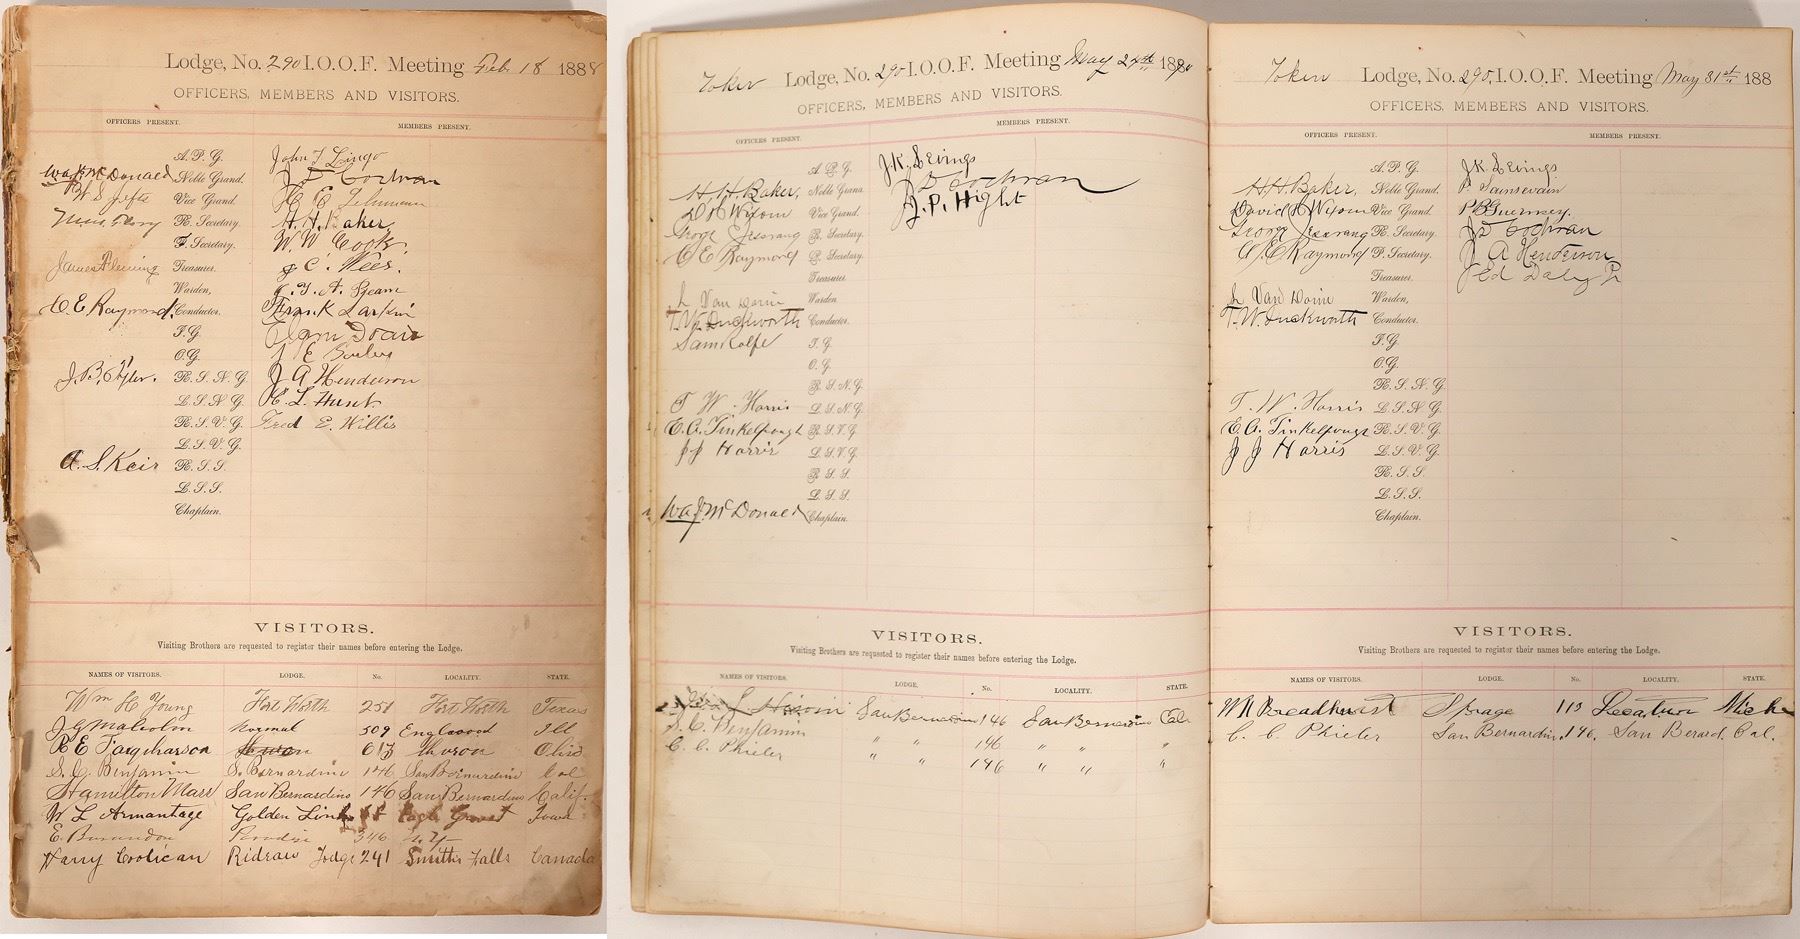 Lodge, No. 290 I.O.O.F. Meeting Feb 18 1888
OFFICERS, MEMBERS AND VISITORS.
OFFICERS PRESENT. MEMBERS PRESENT.
A. P. G. John T Lingo
Wa. J. McDonald Noble Grand. J D Cochran
Vice Grand.
R. Secretary. H. H. Baker
F. Secretary. W. W Cook
James Fleming Treasurer.
Warden,
C. E Raymond. Conductor. Frank Larkin
I. G.
O. G.
R. S. N. G. J A Henderson
L. S. N. G. R. L. Hunt
R. S. V. G. Fred E. Willis
L. S. V. G.
A. S. Keir R. S. S.
L. S. S.
Chaplain.
VISITORS.
Visiting Brothers are requested to register their names before entering the Lodge.
NAMES OF VISITORS. LODGE. No. LOCALITY. STATE.
Wm H Young Fort Worth 251 Fort Worth Texas
J G Malcolm Normal 509 Englewood Ill
R E Farquharson 613 Huron Ohio
S. C. Benjamin S. Bernardino 146 San Bernardino Cal
Hamilton Marr San Bernardino 146 San Bernardino Calif.
W L Armantage Golden Link Iowa
E. Paradise 346 N. Y
Harry Coolican Rideau Lodge 241 Smiths Falls Canada
Token Lodge, No. 290 I.O.O.F. Meeting May 24th 1890
OFFICERS, MEMBERS AND VISITORS.
OFFICERS PRESENT. MEMBERS PRESENT.
A. P. G. J. K. Levings
H. H. Baker, Noble Grand. J D Cochran
D R Wixom Vice Grand. J. P. Hight
George R. Secretary.
C E Raymond P. Secretary.
Treasurer.
L Van Dorin Warden
T. W. Duckworth Conductor.
Sam Rolfe I. G.
O. G.
R. S. N. G.
T W. Harris L. S. N. G.
E. A. Tinkelpaugh R. S. V. G.
J J Harris L. S. V. G.
R. S. S.
L. S. S.
Wa. J. McDonald Chaplain.
VISITORS.
Visiting Brothers are requested to register their names before entering the Lodge.
NAMES OF VISITORS. LODGE. No. LOCALITY. STATE.
San Bernardino 146 San Bernardino Cal
S. C. Benjamin " " 146 " " "
C. C. Phieler " " 146 " " "
Token Lodge, No. 290, I.O.O.F. Meeting May 31st 188
OFFICERS, MEMBERS AND VISITORS.
OFFICERS PRESENT. MEMBERS PRESENT.
A. P. G. J. K. Levings
H. H. Baker, Noble Grand. P Sainsevain
David R Wixom Vice Grand. P B Guernsey.
George R. Secretary. J D Cochran
C. E Raymond P. Secretary. J A Henderson
Treasurer. Ed Daley Jr
L Van Dorin Warden,
T. W. Duckworth Conductor.
I. G.
O. G.
R. S. N. G.
T. W. Harris L. S. N. G.
E. A. Tinkelpaugh R. S. V. G.
J J Harris L. S. V. G.
R. S. S.
L. S. S.
Chaplain.
VISITORS.
Visiting Brothers are requested to register their names before entering the Lodge.
NAMES OF VISITORS. LODGE. No. LOCALITY. STATE.
W H Broadhurst Decatur Mich
C. C Phieler San Bernardino. 146. San Cal.